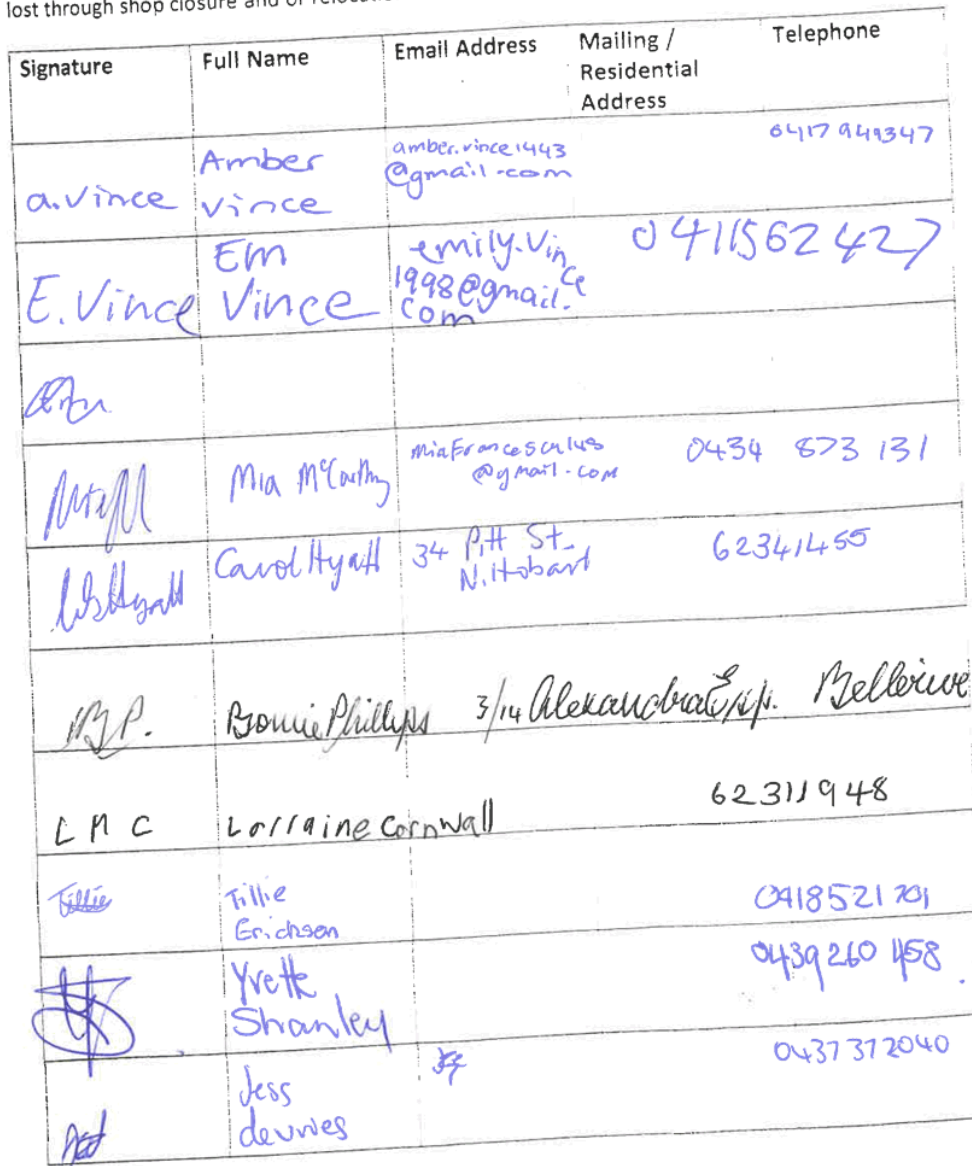 lost through shop closure and or
Signature Full Name Email Address Mailing / Residential Address Telephone
a.vince Amber Vince amber.vince1443@gmail.com 0417 949347
E.Vince Em Vince emily.vince1998@gmail.com 0411562427
Mia McCarthy @gmail.com 0434 873 131
Carol Hyatt 34 Pitt St. N.Hobart 62341455
B.P. Bonnie Phillips 3/14 Alexandra Esp. Bellerive
L M C Lorraine Cornwall 62311948
Tillie Tillie Erichsen 0418521701
Yvette Shanley 0439260 458
Jess devries 0437372040